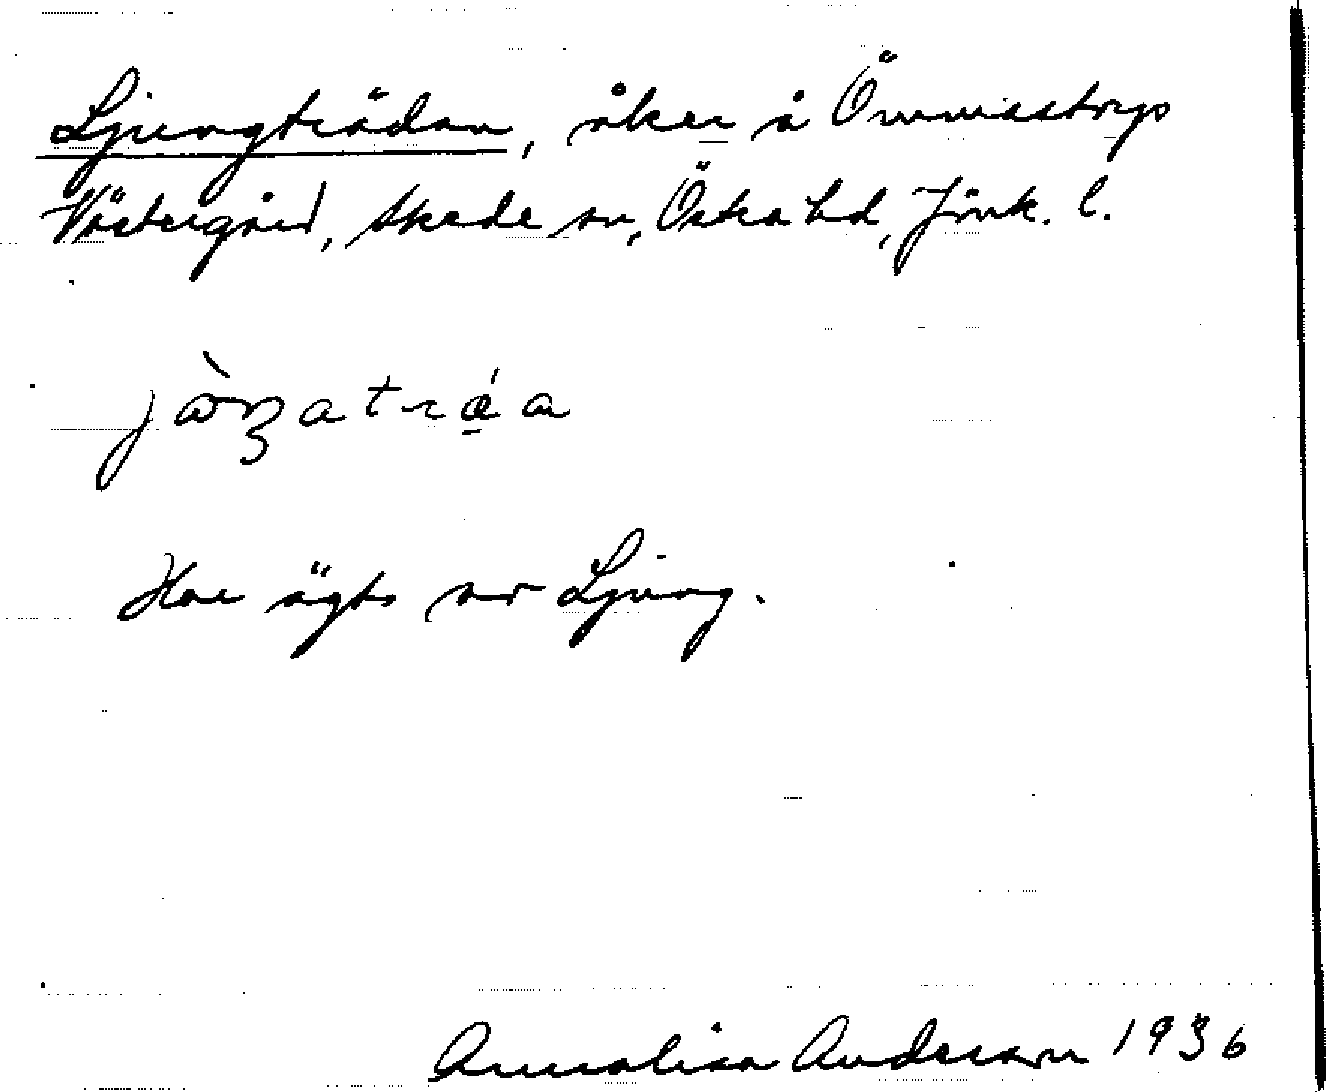 Ljungträdan, åker å Ömmestorps
Västergård, Skede sn, Östra hd, Jönk. l.
Har ägts av Ljung.
Annalisa Anderson 1936